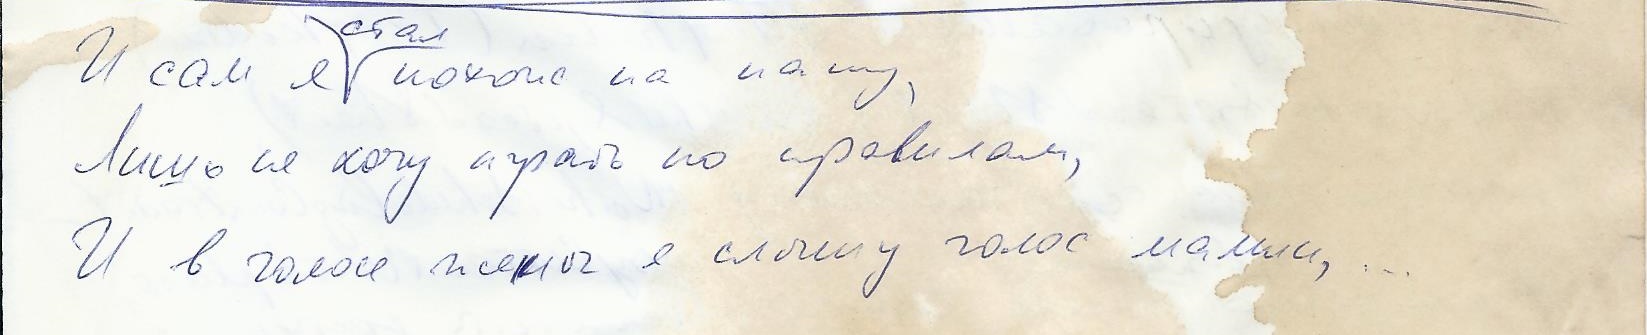 И сам я стал похож на папу,
Лишь не хочу играть по правилам,
И в голосе жены я слышу голос мамы, ...